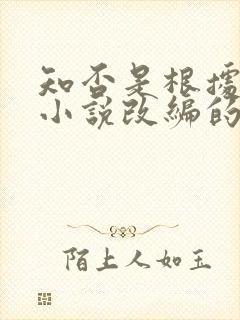 知否是根據
小說改編的
陌上人如玉